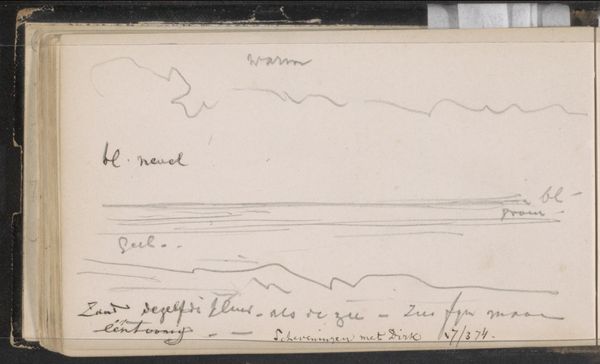 warm
bl. nevel
bl-
groen
geel..
Zand dezelfde kleur als de zee - zeer fijn maar
één toonig - -
Scheveningen met Dirk 17/3 74.